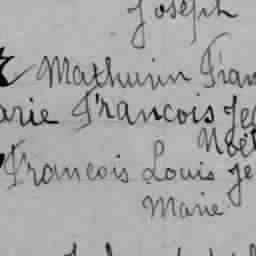 Joseph
Mathurin Fran
arie Francois Je
Noël
Francois Louis Je
Marie